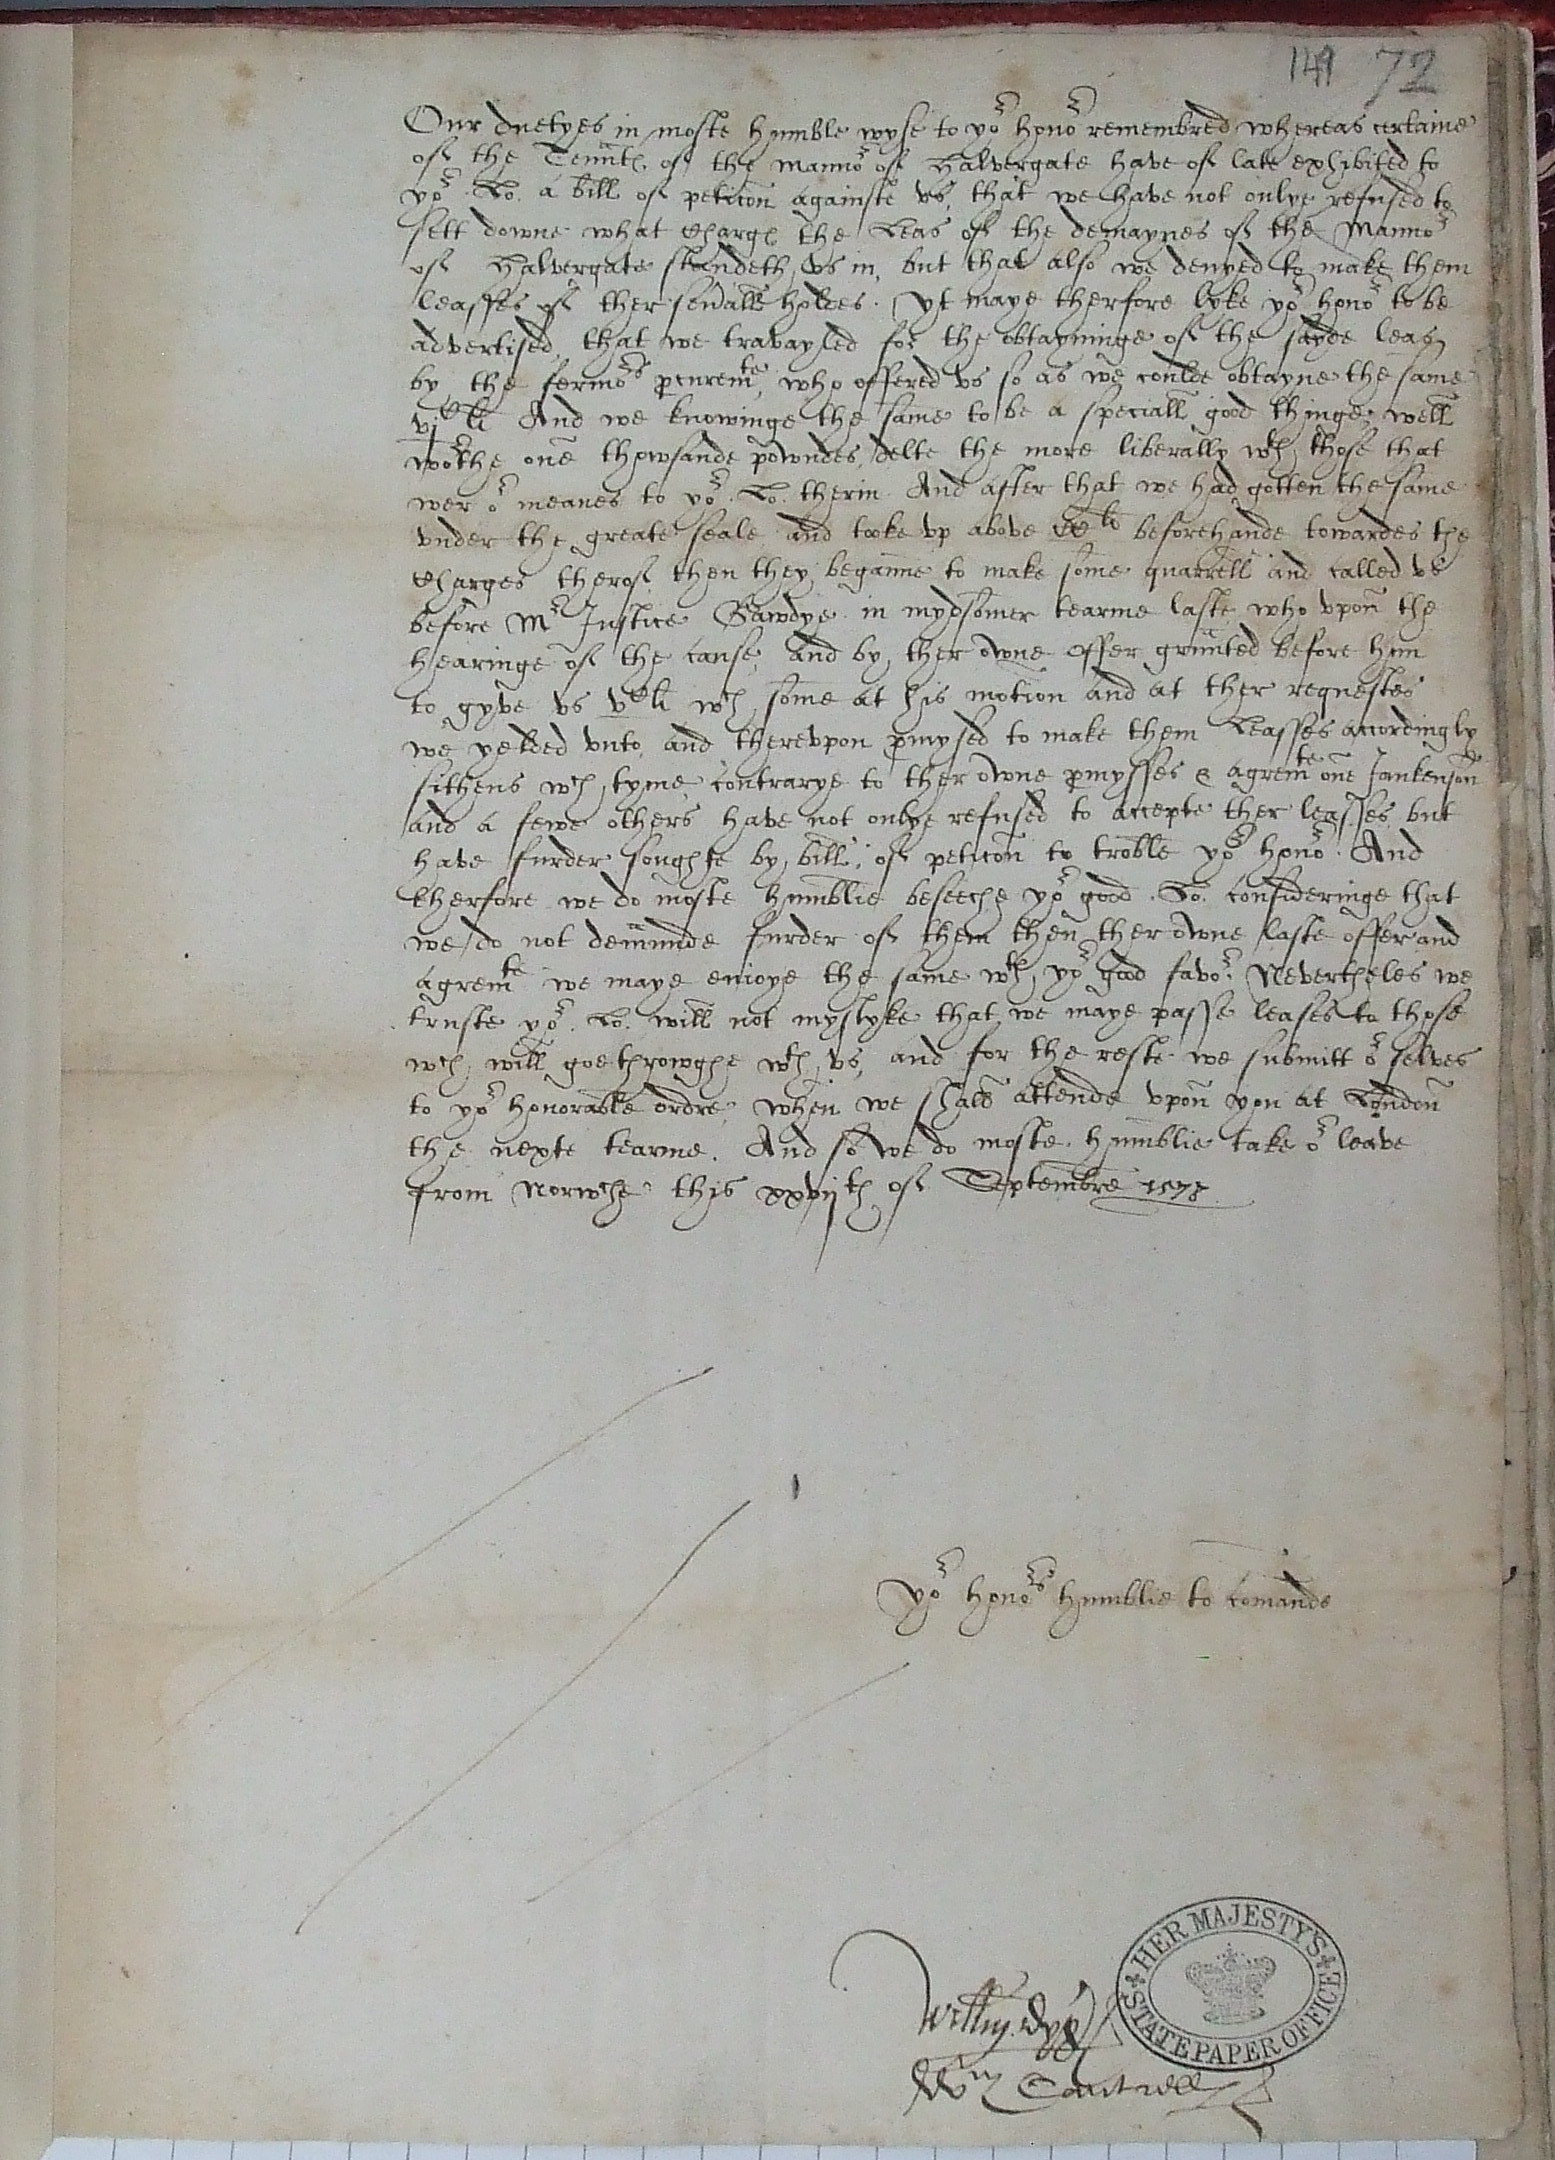 149 72
Our duetyes in moste humble wyse to yor honor remembred whereas certaine
of the Tennts of the mannor of Halvergate have of late exhibited to
yor Lo. a bill of peticon againste vs, that we have not onlye refused to
sett downe what charges the Leas of the demaynes of the Mannor
of Halvergate standeth vs in, but that also we denyed to make them
leasses of ther seuall holdes. yt maye therfore lyke yor honor to be
advertised, that we travayled for the obtayninge of the sayde leas
by the fermors pcuremte, who offered vs so as we coulde obtayne the same
vjc li And we knowinge the same to be a speciall good thinge, well
worthe one thowsande powndes, delte the more liberally wth those that
wer or meanes to yor Lo. therin. And after that we had gotten the same
vnder the greate seale and tooke vp above cc li beforehande towardes the
charges therof, then they beganne to make some quarrell and called vs
before Mr Justice Gawdye in mydsomer tearme laste, who vpon the
hearinge of the cause, and by ther owne offer graunted before him
to gyve vs vc li wch some at his motion and at ther requestes
we yelded vnto, and therevpon pmysed to make them Leasses accordingly
sithens wch tyme contrarye to ther owne pmysses & agremte one Jankenson
and a fewe others have not onlye refused to accepte ther leasses but
have furder soughte by bill of peticon to troble yor honor. And
therfore we do moste humblie beseeche yor good Lo. consideringe that
we do not demaunde furder of them then ther owne laste offer and
agremte we maye enioye the same wth yor good favor. Nevertheles we
truste yor Lo. will not myslyke that we maye passe leases to those
wch will goe throwghe wth vs, and for the reste we submitt or selves
to yor honorable ordre, when we shall attende vpon you at London
the nexte tearme. And so we do moste humblie take or leave
from Norwche this xxvijth of Septembre 1578
yor honors humblie to comande
Wm Cantrell
HER MAJESTY'S STATE PAPER OFFICE